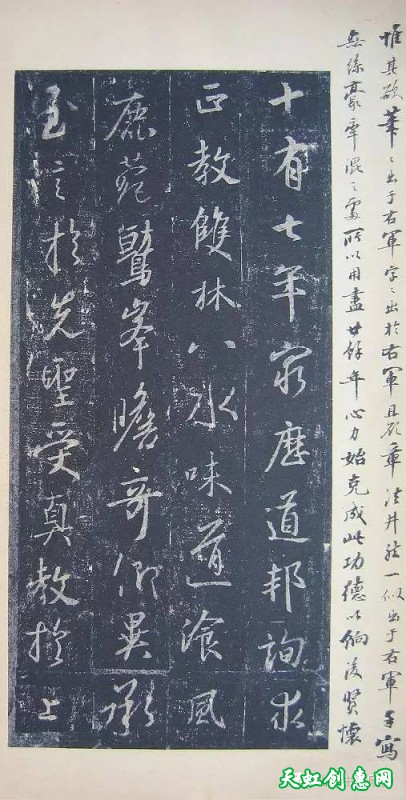 惟其欲筆筆出于右軍字字出於右軍且章法并發一似出于右軍手寫
無絲豪牽混之處所以用盡廿餘年心力始克成此功德以餉後賢懷
十有七年窮歷道邦詢求
正教雙林八水味道飡風
鹿菀鷲峯瞻奇仰異承
至言於先聖受真教於上
天虹创意网